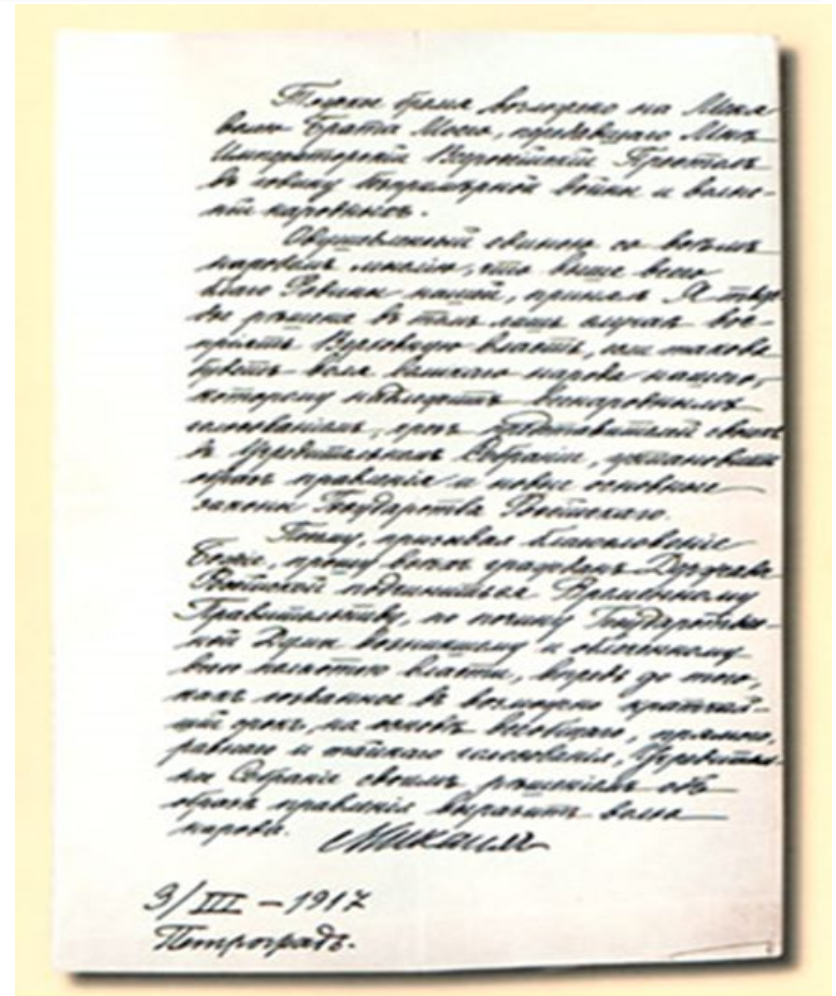 Тяжкое бремя возложено на Меня
волею Брата Моего, передавшаго Мнѣ
Императорскій Всероссійскій Престолъ
въ годину безпримѣрной войны и волне-
ній народныхъ.
Одушевленный единою со всѣмъ
народомъ мыслію, что выше всего
благо Родины нашей, принялъ Я твер-
дое рѣшеніе въ томъ лишь случаѣ вос-
пріять Верховную власть, если такова
будетъ воля великаго народа нашего,
которому надлежитъ всенароднымъ
голосованіемъ, чрезъ представителей своихъ
въ Учредительномъ Собраніи, установить
образъ правленія и новые основные
законы Государства Россійскаго.
Посему, призывая благословеніе
Божіе, прошу всѣхъ гражданъ Державы
Россійской подчиниться Временному
Правительству, по почину Государствен-
ной Думы возникшему и облеченному
всею полнотою власти, впредь до того,
какъ созванное въ возможно кратчай-
шій срокъ, на основѣ всеобщаго, прямого,
равнаго и тайнаго голосованія, Учредитель-
ное Собраніе своимъ рѣшеніемъ объ
образѣ правленія выразитъ волю
народа.
Михаилъ
3/III - 1917
Петроградъ.